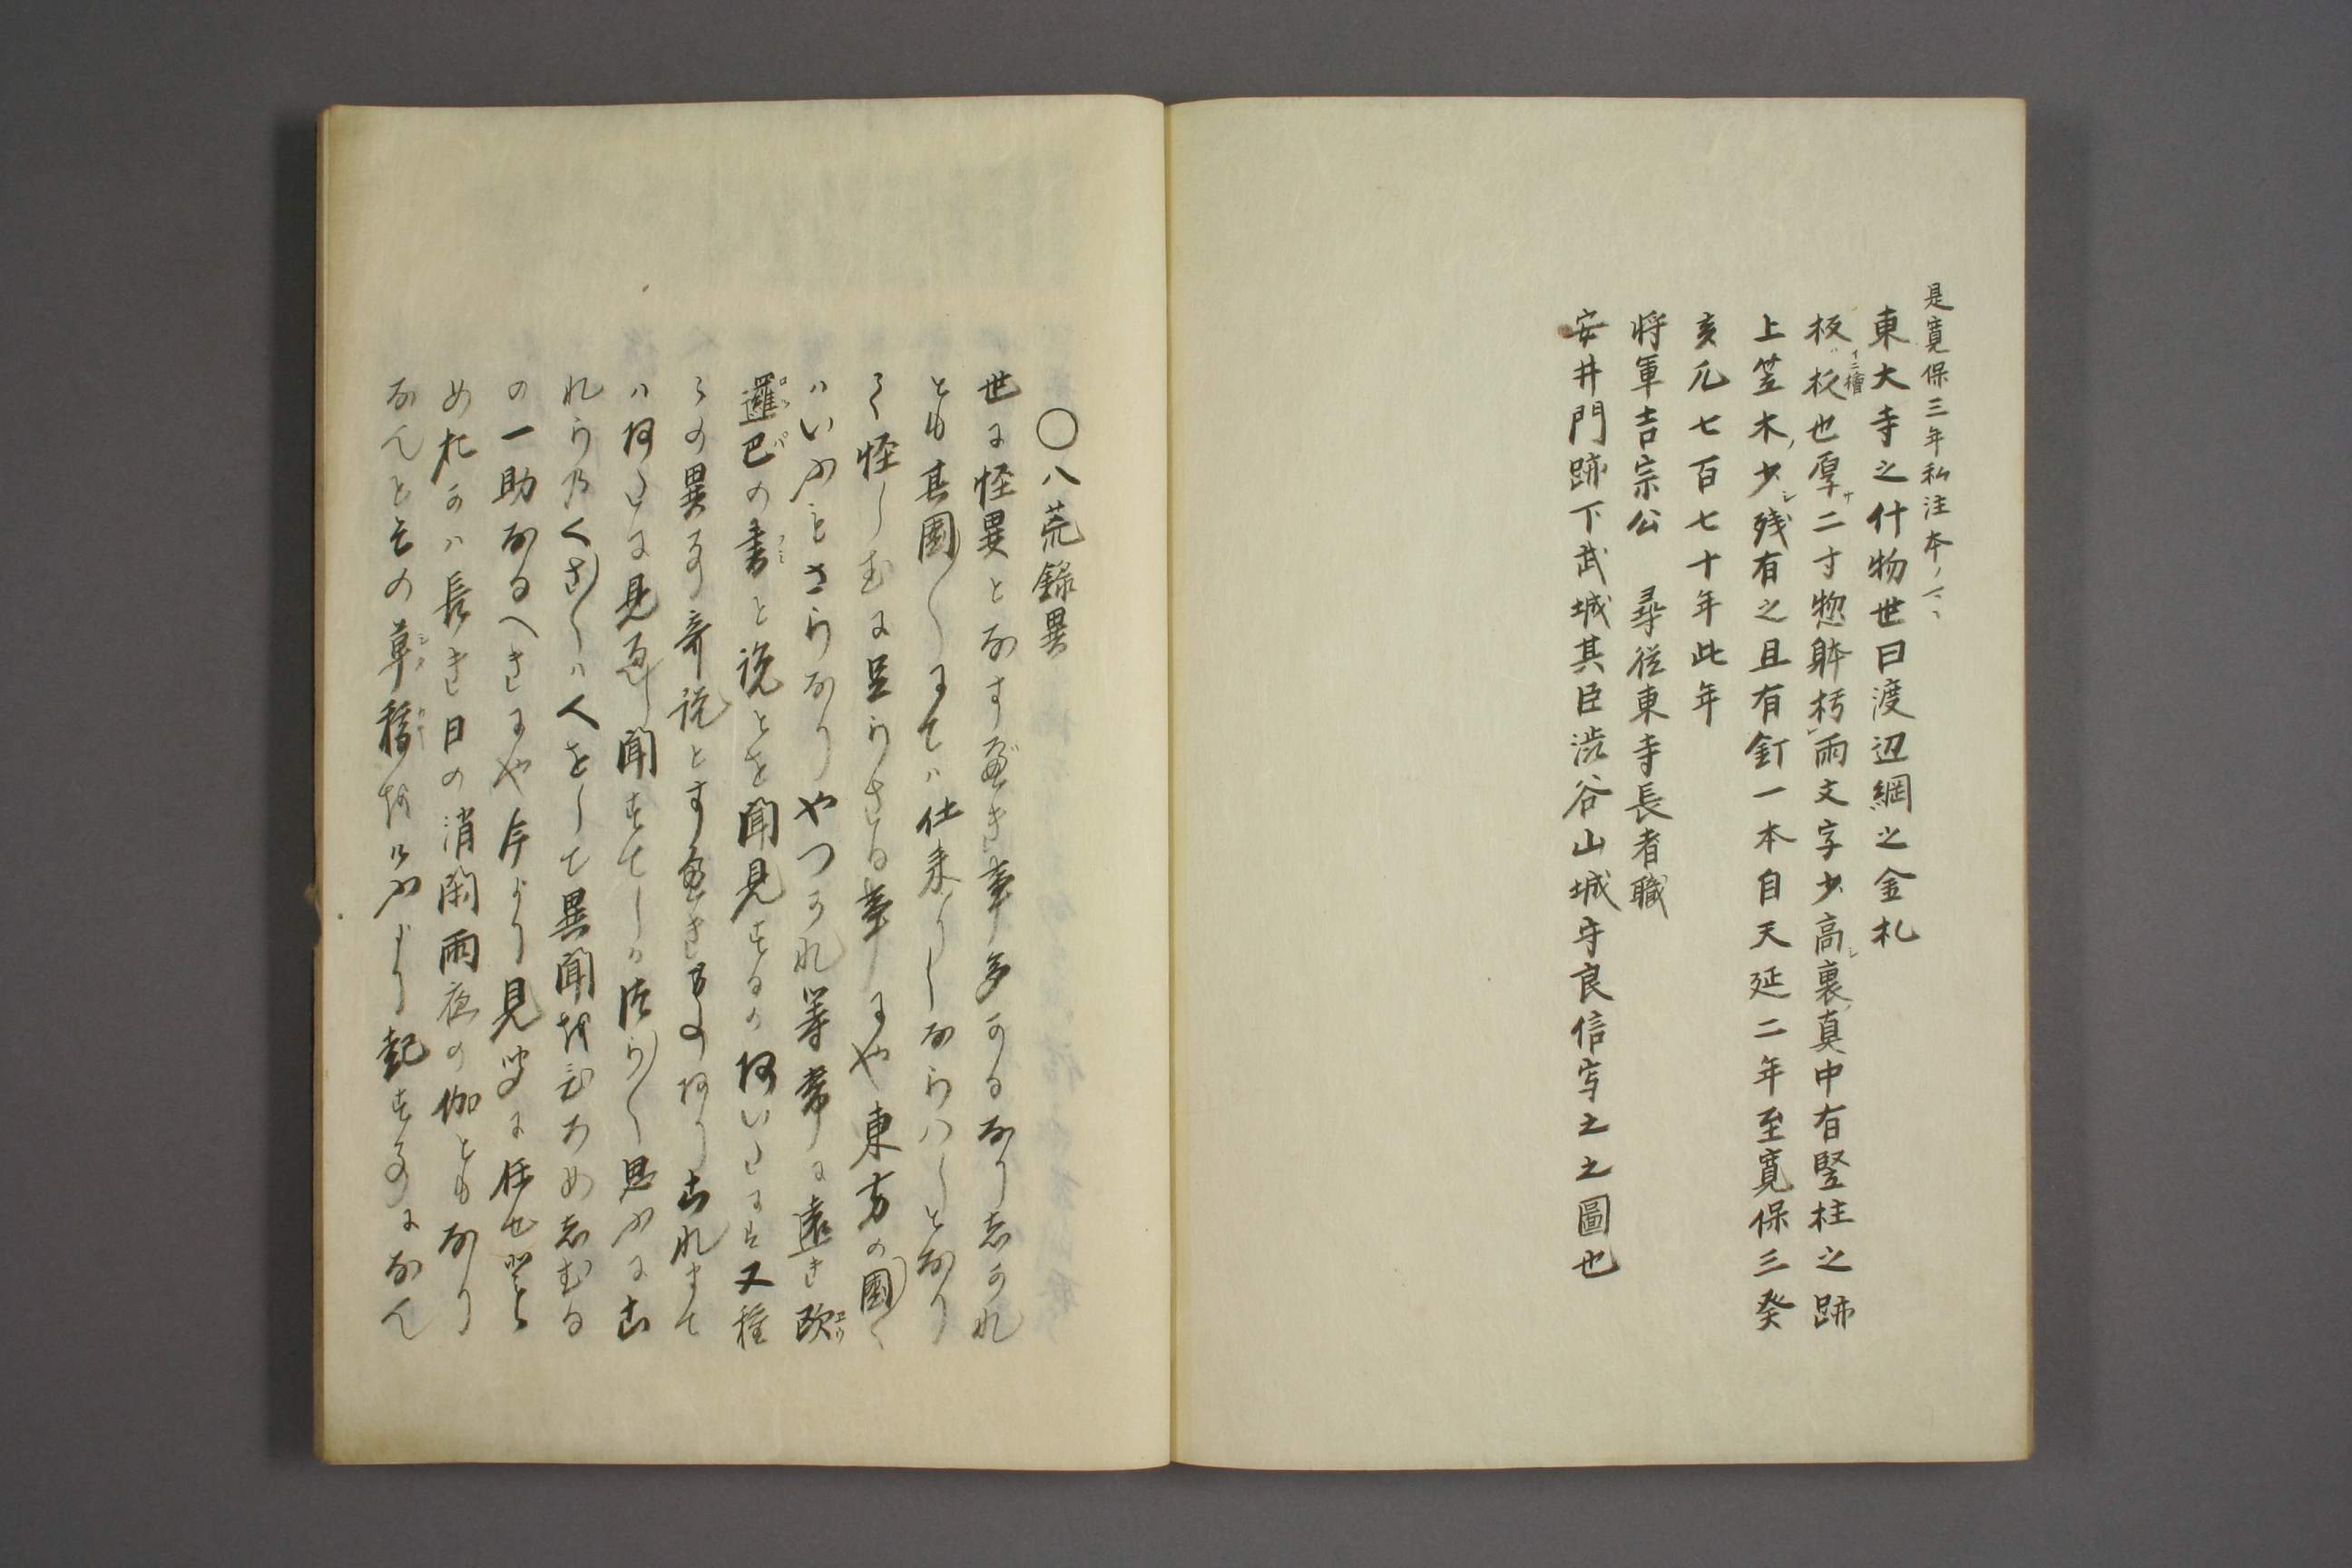 是寛保三年私注本ノマヽ
東大寺之什物世曰渡辺綱之金札
板ハ板也厚サ二寸惣躰朽シ雨文字少高シ裏ノ真中有竪柱之跡
イニ檜
上笠木ノ少シ残有之且有釘一本自天延二年至寛保三癸
亥凡七百七十年此年
将軍吉宗公 尋従東寺長者職
安井門跡下武城其臣渋谷山城守良信写之之圖也
〇八荒錄異
世に怪異となすべき事多かるなり志かれ
とも其國〳〵にては仕来りしならハしとなり
て怪しむに足らさる事にや東方の國〳〵
ハいふもさらなりやつかれ等常に遠き欧
邏巴の書と説とを聞見するか何いにも又種
〻の異事奇説とすべき事あり古れまて
ハ何くに見過し聞すてしか法ら〳〵思ふに古
れら乃くさ〳〵ハ人をして異聞越ひろめ志むる
の一助なるへきにや今より見聞に任せ
め札かハ長き日の消閑雨夜の伽ともなり
なんとその草稿越よりより起するになん